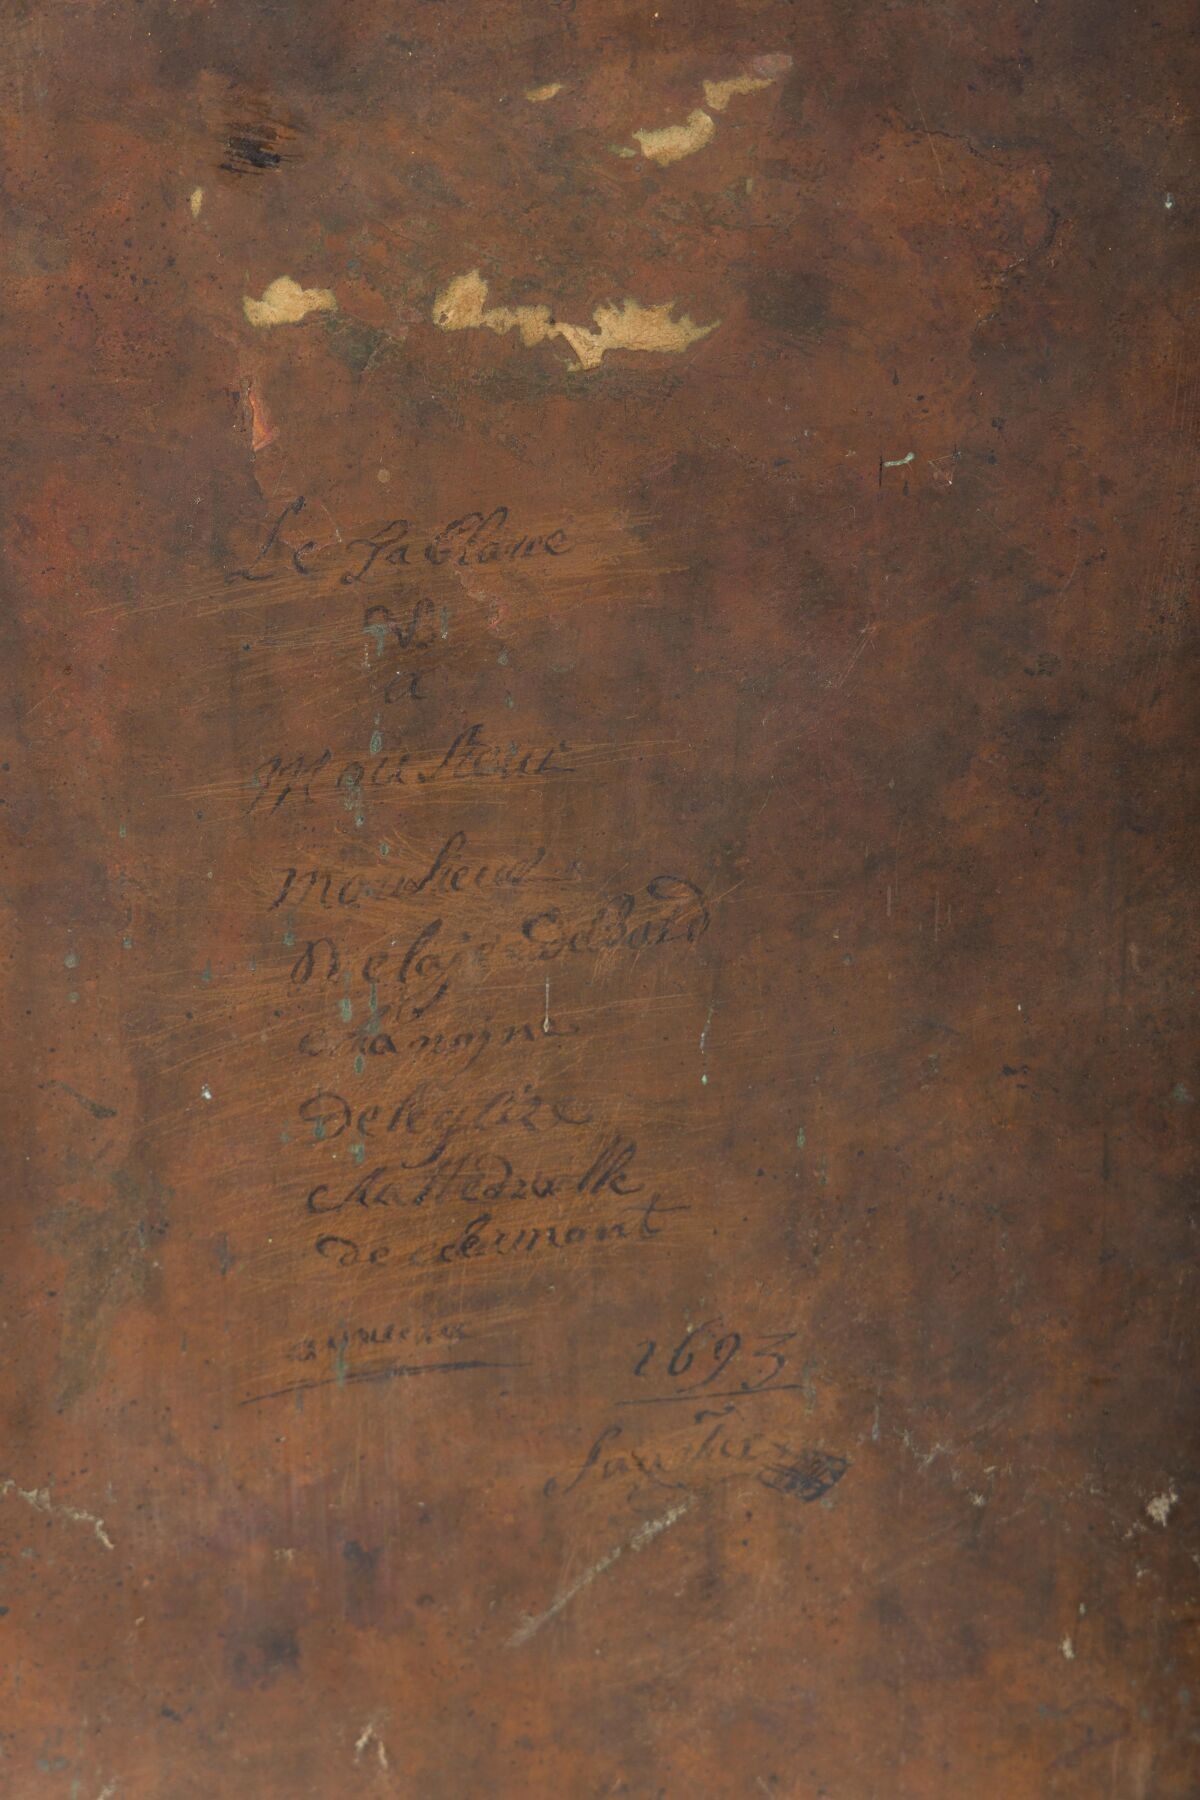 Le Tablaue
Et
a
Monsieur
monsieur
De
chanojne
De leglize
Cattedzalle
de clermont
1693